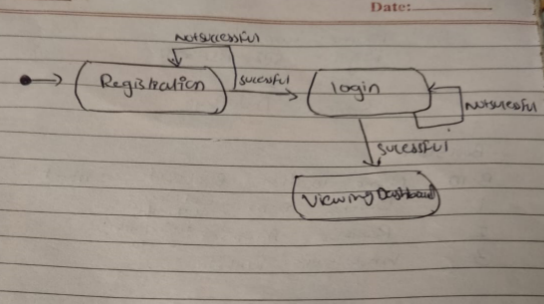 Date:
Notsuccessful
Registration
successful
login
Notsucessful
sucessful
Viewing Dashboard